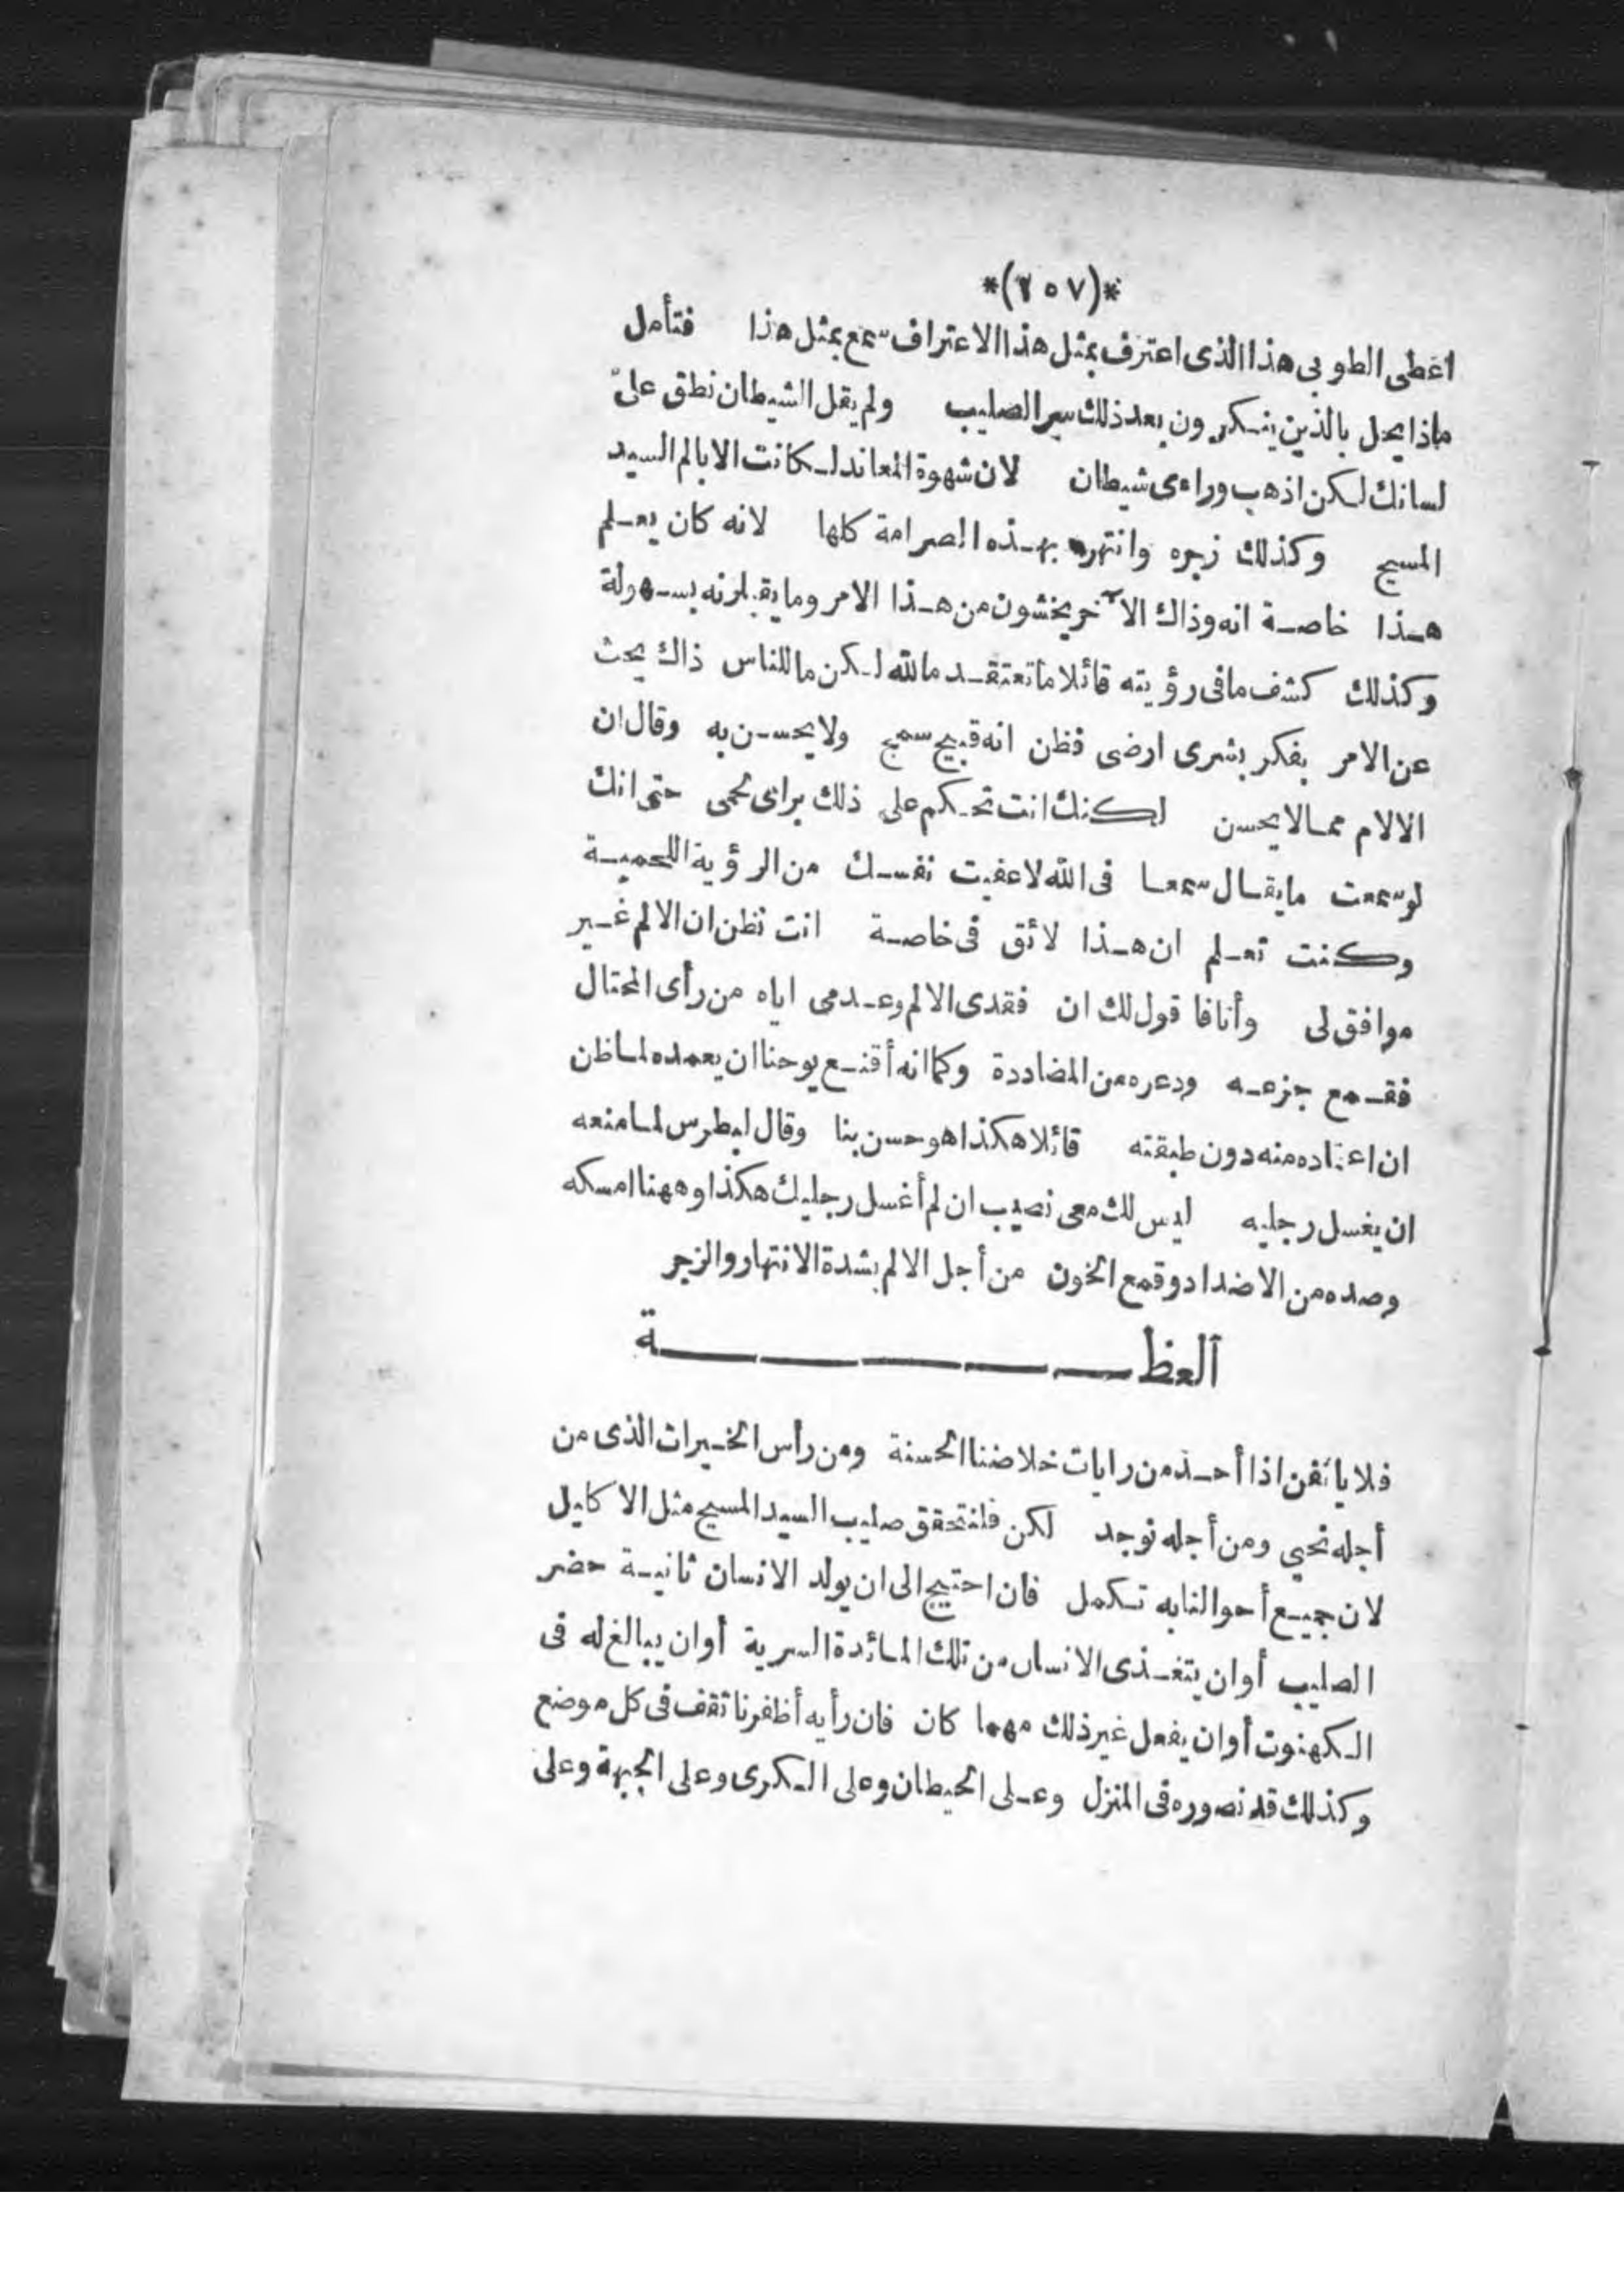 *(٢٥٧)*
اغطى الطوبى هذا الذى اعترف بمثل هذا الاعتراف سمع بمثل هذا فتأمل
ماذا يحل بالذين ينكرون بعد ذلك سر الصليب ولم يقل الشيطان نطق على
لسانك لكن اذهب وراءى شيطان لان شهوة المعاند لكانت الا يالم السيد
المسيح وكذلك زجره وانتهره بهذه الصرامة كلها لانه كان يعلم
هذا خاصة انه وذاك الآخر يخشون من هذا الامر وما يقبلونه بسهولة
وكذلك كشف ما فى رؤيته قائلا ما تعتقد ما لله لكن ما للناس ذاك بحث
عن الامر بفكر بشرى ارضى فظن انه قبيح سمج ولا يحسن به وقال ان
الالام مما لا يحسن لكنك انت تحكم على ذلك براى لحمى حتى انك
لو سمعت ما يقال سمعا فى الله لاعفيت نفسك من الرؤية اللحمية
وكنت تعلم ان هذا لائق فى خاصة انت تظن ان الالم غير
موافق لى وأنا فاقول لك ان فقدى الالم وعدمى اياه من رأى المحتال
فقمع جزعه وذعره من المضاددة وكما انه أقنع يوحنا ان يعمده لما ظن
ان اعتماده منه دون طبقته قائلا هكذا هو حسن بنا وقال لبطرس لما منعه
ان يغسل رجليه ليس لك معى نصيب ان لم أغسل رجليك هكذا وههنا امسكه
وصده من الاضداد وقمع الخون من أجل الالم بشدة الانتهار والزجر
العظة
فلا يأنفن اذا أحد من رايات خلاصنا الحسنة ومن رأس الخيرات الذى من
أجله نحيى ومن أجله نوجد لكن فلنتحقق صليب السيد المسيح مثل الاكايل
لان جميع أحوالنا به تكمل فان احتيج الى ان يولد الانسان ثانية حضر
الصليب أو ان يتغذى الانسان من تلك المائدة السرية أو ان يبالغ له فى
الكهنوت أو ان يفعل غير ذلك مهما كان فان رأيه أظفرنا تقف فى كل موضع
وكذلك قد نصوره فى المنزل وعلى الحيطان وعلى الكرى وعلى الجبهة وعلى